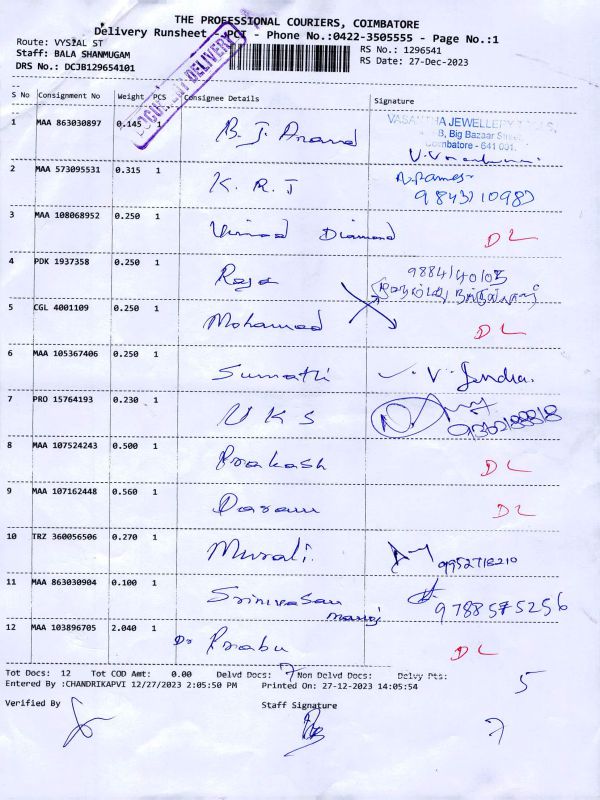 THE PROFESSIONAL COURIERS, COIMBATORE
Delivery Runsheet - PCT - Phone No.:0422-3505555 - Page No.:1
Route: VYSZAL ST
RS No.: 1296541
Staff: BALA SHANMUGAM
RS Date: 27-Dec-2023
DRS No.: DCJB129654101
DOCUMENT DELIVERY
S No Consignment No Weight PCS Consignee Details Signature
1 MAA 863030897 0.145 1 B. J. Anand
VASANTHA JEWELLERY
B, Big Bazaar Street,
Coimbatore - 641 001.
2 MAA 573095531 0.315 1 K. R. J
3 MAA 108068952 0.250 1 Diamond DL
4 PDK 1937358 0.250 1 Raja
5 CGL 4001109 0.250 1 Mohamad DL
6 MAA 105367406 0.250 1 Sumathi
7 PRO 15764193 0.230 1 U K S
8 MAA 107524243 0.500 1 Prakash DL
9 MAA 107162448 0.560 1 DL
10 TRZ 360056506 0.270 1 Murali. 9952718210
11 MAA 863030904 0.100 1 Srinivasan 9788575256
12 MAA 103896705 2.040 1 Dr Prabu DL
Tot Docs: 12 Tot COD Amt: 0.00 Delvd Docs: 7 Non Delvd Docs: Delvy Pts: 5
Entered By :CHANDRIKAPVI 12/27/2023 2:05:50 PM Printed On: 27-12-2023 14:05:54
Verified By Staff Signature
7